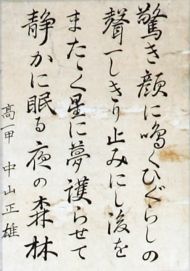 驚き顔に鳴くひぐらしの
聲一しきり止みにし後を
またゝく星に夢護らせて
静かに眠る夜の森林
高甲 中山正雄